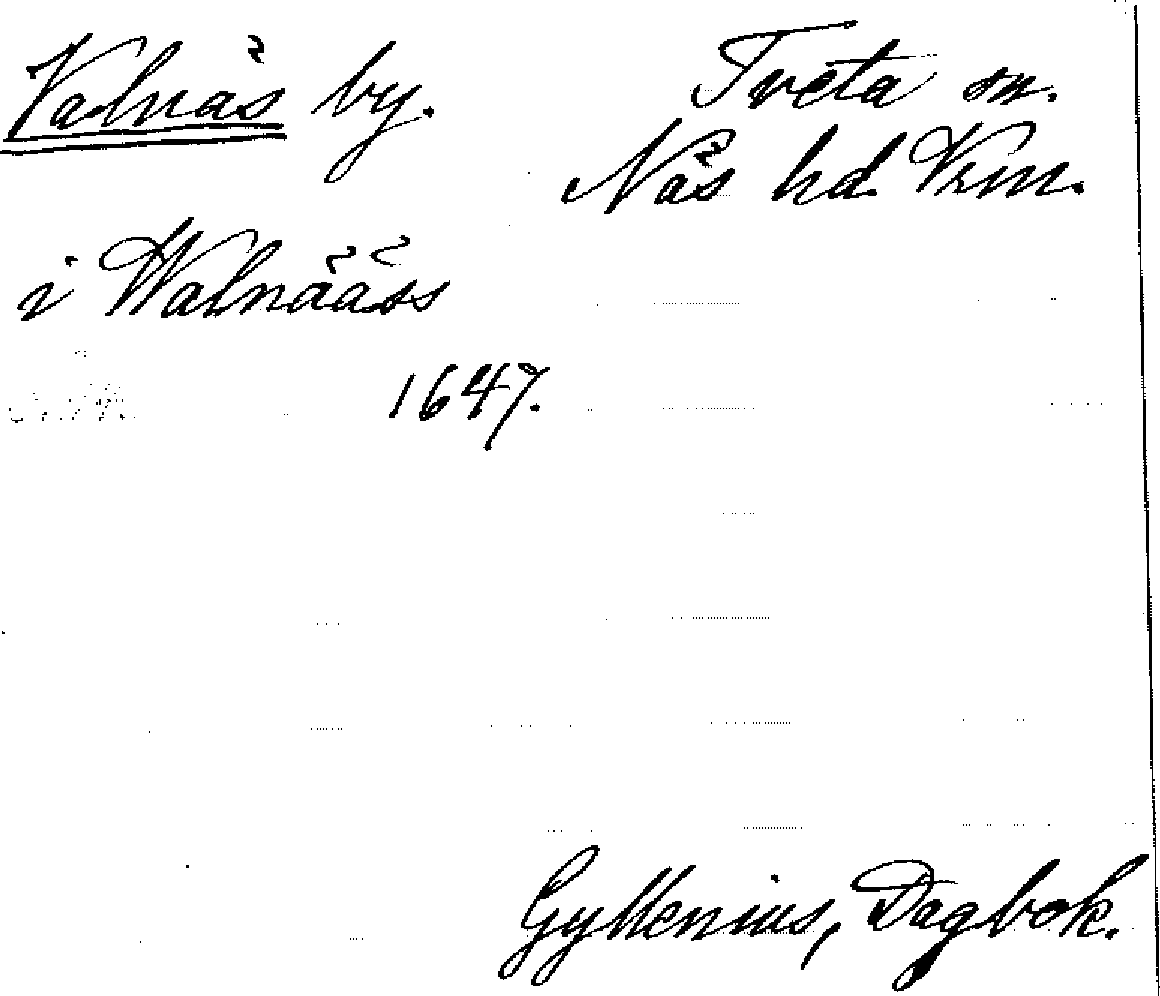 Valnäs by.
Tveta sn.
Näs hd. Vrm.
i Walnääss
1647.
Gyllenius, Dagbok.